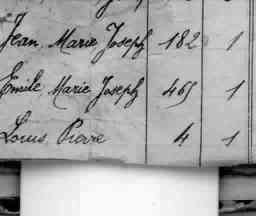 Jean Marie Joseph 182 1
Emile Marie Joseph 465 1
Louis Pierre 4 1